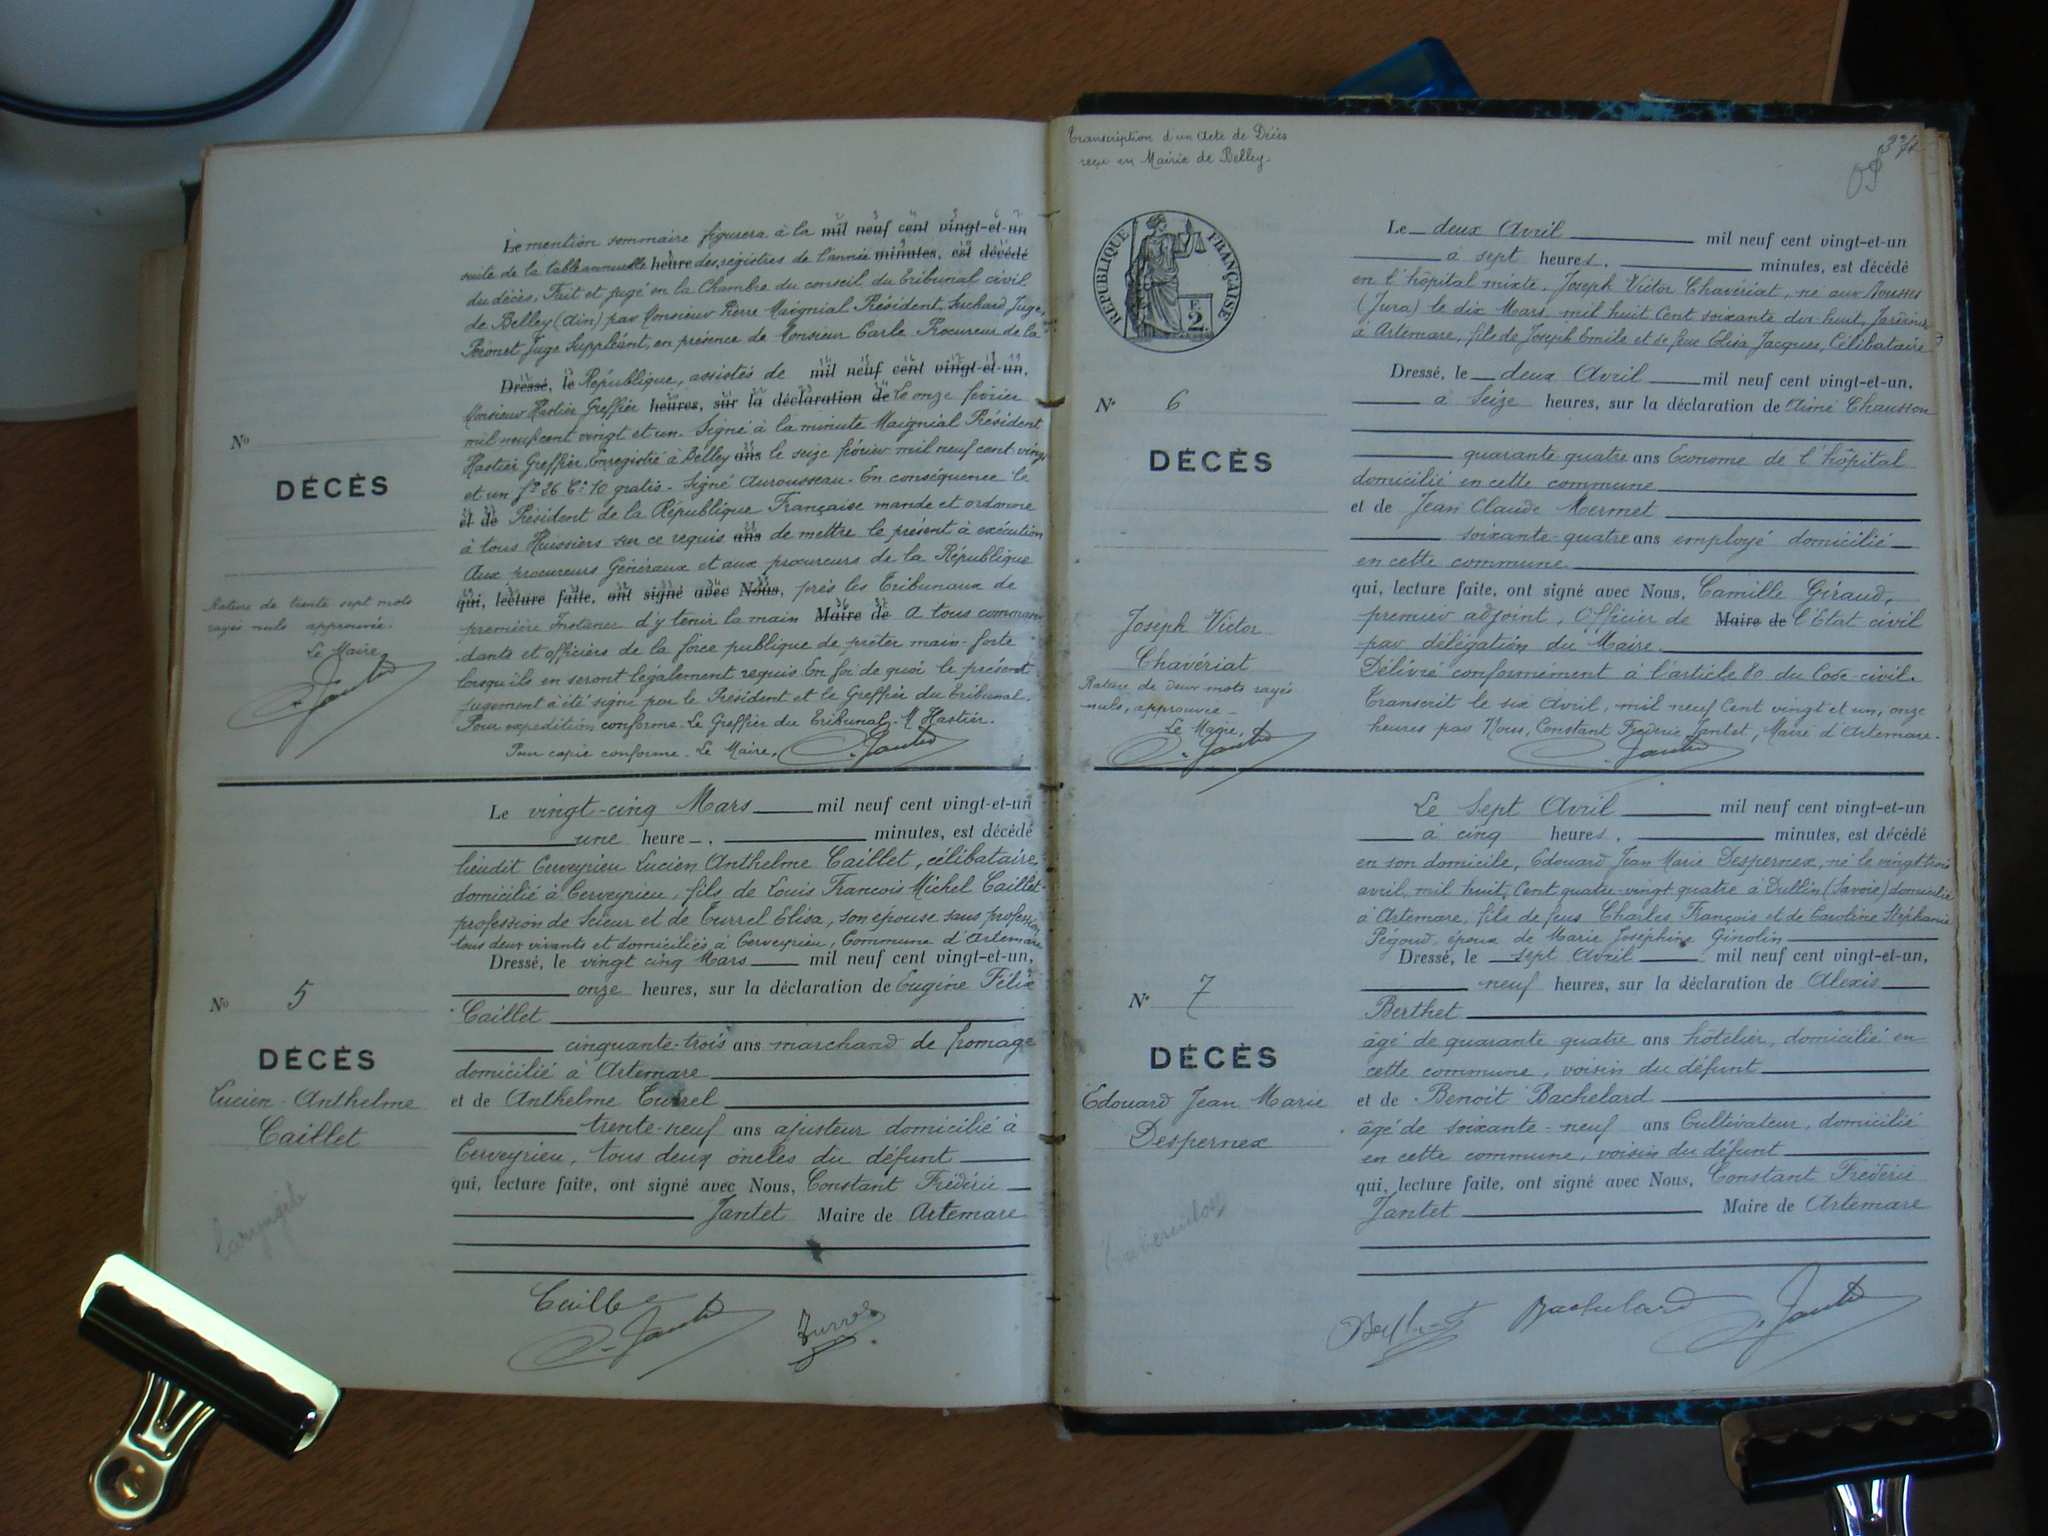 Le mention sommaire figurera à la mil neuf cent vingt-et-un
suite de la table annuelle heure des registres de l'année minutes, est décédé
du décès, Fait et jugé en la Chambre du conseil du Tribunal civil
de Belley (Ain) par Monsieur Pierre Maignial Président, Juge,
Juge Suppléant, en présence de Monsieur Carle Procureur de la
Dressé, le République, assistés de mil neuf cent vingt-et-un,
Monsieur Hastier Greffier heures, sur la déclaration de Le onze février
mil neuf cent vingt et un. Signé à la minute Maignial Président
Hastier Greffier. Enregistré à Belley ans le seize février mil neuf cent vingt
et un f° 36 C° 10 gratis. Signé Aurousseau. En conséquence le
et de Président de la République Française mande et ordonne
à tous Huissiers sur ce requis ans de mettre le présent à exécution
Aux procureurs Généraux et aux procureurs de la République
qui, lecture faite, ont signé avec Nous, près les Tribunaux de
première Instance d'y tenir la main Maire de A tous comman
dants et officiers de la force publique de prêter main-forte
lorsqu'ils en seront légalement requis. En foi de quoi le présent
jugement a été signé par le Président et le Greffier du Tribunal.
Pour expédition conforme. Le Greffier du Tribunal. M. Hastier.
Pour copie conforme. Le Maire, C. Jantet
No
DÉCÈS
Rature de trente sept mots
rayés nuls approuvée.
Le Maire,
C. Jantet
Le vingt-cinq Mars mil neuf cent vingt-et-un
une heure . minutes, est décédé
lieudit Cerveyrieu Lucien Anthelme Caillet, célibataire,
domicilié à Cerveyrieu, fils de Louis François Michel Caillet
profession de Scieur et de Turrel Elisa, son épouse sans profession
tous deux vivants et domiciliés à Cerveyrieu, Commune d'Artemare
Dressé, le vingt cinq Mars mil neuf cent vingt-et-un,
onze heures, sur la déclaration de Eugène Félix
Caillet
cinquante-trois ans marchand de fromage
domicilié à Artemare
et de Anthelme Turrel
trente-neuf ans ajusteur domicilié à
Cerveyrieu, tous deux oncles du défunt
qui, lecture faite, ont signé avec Nous, Constant Frédéric
Jantet Maire de Artemare
No 5
DÉCÈS
Lucien-Anthelme
Caillet
laryngite
Caillet
C. Jantet
Turrel
Transcription d'un Acte de Décès
reçu en Mairie de Belley.
374
RÉPUBLIQUE FRANÇAISE
2 F.
Le deux Avril mil neuf cent vingt-et-un
à sept heures. minutes, est décédé
en l'hôpital mixte, Joseph Victor Chavériat, né aux Mousses
(Jura) le dix Mars mil huit cent soixante dix huit, Jardinier
à Artemare, fils de Joseph Emile et de feue Elisa Jacques, Célibataire
Dressé, le deux Avril mil neuf cent vingt-et-un,
à Seize heures, sur la déclaration de Aimé Chausson
quarante-quatre ans Econome de l'hôpital
domicilié en cette commune
et de Jean Claude Mermet
soixante-quatre ans employé domicilié
en cette commune
qui, lecture faite, ont signé avec Nous, Camille Giraud,
premier adjoint, Officier de Maire de l'Etat civil
par délégation du Maire.
Délivré conformément à l'article 80 du Code civil.
Transcrit le six Avril, mil neuf cent vingt et un, onze
heures par Nous, Constant Frédéric Jantet, Maire d'Artemare.
C. Jantet
N° 6
DÉCÈS
Joseph Victor
Chavériat
Rature de deux mots rayés
nuls, approuvée
Le Maire,
C. Jantet
Le Sept Avril mil neuf cent vingt-et-un
à cinq heures. minutes, est décédé
en son domicile, Edouard Jean Marie Despernex, né le vingt trois
avril mil huit cent quatre-vingt quatre à Dullin (Savoie) domicilié
à Artemare, fils de feus Charles François et de Caroline Stéphanie
Pégoud, époux de Marie Joséphine Ginolin
Dressé, le sept Avril mil neuf cent vingt-et-un,
neuf heures, sur la déclaration de Alexis
Berthet
âgé de quarante quatre ans hôtelier, domicilié en
cette commune, voisin du défunt
et de Benoit Bachelard
âgé de soixante-neuf ans Cultivateur, domicilié
en cette commune, voisin du défunt
qui, lecture faite, ont signé avec Nous, Constant Frédéric
Jantet Maire de Artemare
N° 7
DÉCÈS
Edouard Jean Marie
Despernex
Tuberculose
Berthet
Bachelard
C. Jantet